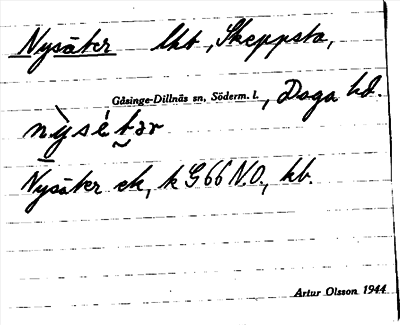 Nysäter lht, Skeppsta,
Gåsinge-Dillnäs sn, Söderm. l., Daga hd.
nỳsétər
Nysäter ek, k G66 N.O., hb.
Artur Olsson 1944